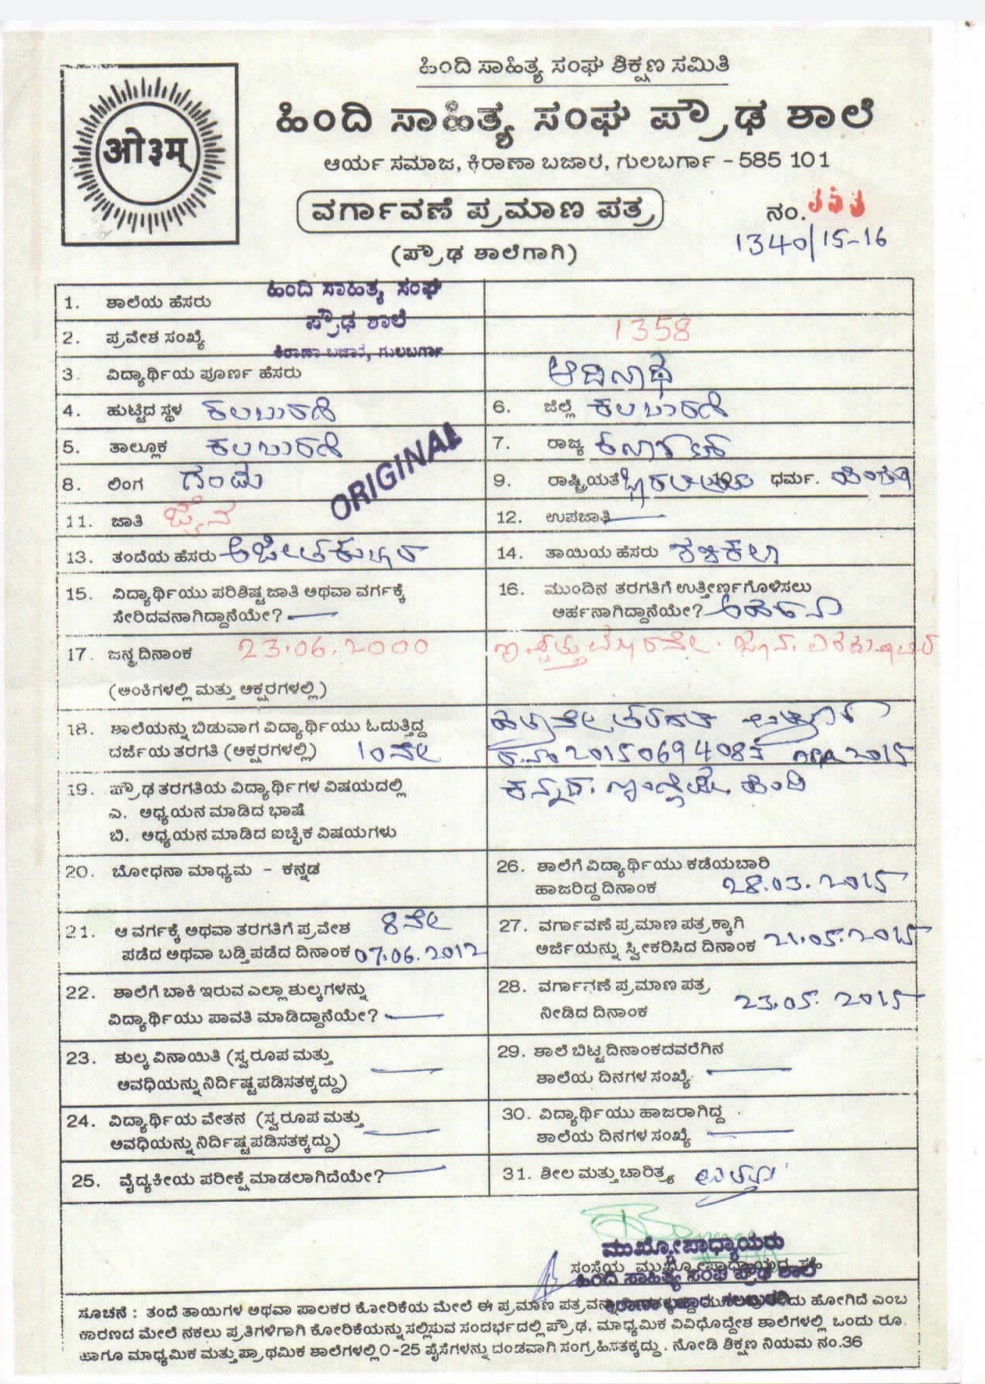 ಹಿಂದಿ ಸಾಹಿತ್ಯ ಸಂಘ ಶಿಕ್ಷಣ ಸಮಿತಿ
ओ३म्
ಹಿಂದಿ ಸಾಹಿತ್ಯ ಸಂಘ ಪ್ರೌಢ ಶಾಲೆ
ಆರ್ಯ ಸಮಾಜ, ಕಿರಾಣಾ ಬಜಾರ, ಗುಲಬರ್ಗಾ - 585 101
ವರ್ಗಾವಣೆ ಪ್ರಮಾಣ ಪತ್ರ
ನಂ.
1340/15-16
(ಪ್ರೌಢ ಶಾಲೆಗಾಗಿ)
1. ಶಾಲೆಯ ಹೆಸರು ಹಿಂದಿ ಸಾಹಿತ್ಯ ಸಂಘ
ಪ್ರೌಢ ಶಾಲೆ
2. ಪ್ರವೇಶ ಸಂಖ್ಯೆ 1358
ಕಿರಾಣಾ ಬಜಾರ, ಗುಲಬರ್ಗಾ
3. ವಿದ್ಯಾರ್ಥಿಯ ಪೂರ್ಣ ಹೆಸರು ಆದಿನಾಥ
4. ಹುಟ್ಟಿದ ಸ್ಥಳ ಕಲಬುರಗಿ
6. ಜಿಲ್ಲೆ ಕಲಬುರಗಿ
5. ತಾಲ್ಲೂಕ ಕಲಬುರಗಿ
7. ರಾಜ್ಯ ಕರ್ನಾಟಕ
ORIGINAL
8. ಲಿಂಗ ಗಂಡು
9. ರಾಷ್ಟ್ರಿಯತೆ ಭಾರತೀಯ ಧರ್ಮ. ಹಿಂದು
11. ಜಾತಿ ಜೈನ
12. ಉಪಜಾತಿ
13. ತಂದೆಯ ಹೆಸರು ಅಜೀತಕುಮಾರ
14. ತಾಯಿಯ ಹೆಸರು ಶಶಿಕಲಾ
15. ವಿದ್ಯಾರ್ಥಿಯು ಪರಿಶಿಷ್ಟ ಜಾತಿ ಅಥವಾ ವರ್ಗಕ್ಕೆ
ಸೇರಿದವನಾಗಿದ್ದಾನೆಯೇ?
16. ಮುಂದಿನ ತರಗತಿಗೆ ಉತ್ತೀರ್ಣಗೊಳಿಸಲು
ಅರ್ಹನಾಗಿದ್ದಾನೆಯೇ?
17. ಜನ್ಮ ದಿನಾಂಕ 23.06.2000
ಇಪ್ಪತ್ತು ಮೂರನೇ. ಜೂನ. ಎರಡುಸಾವಿರ
(ಅಂಕಿಗಳಲ್ಲಿ ಮತ್ತು ಅಕ್ಷರಗಳಲ್ಲಿ)
18. ಶಾಲೆಯನ್ನು ಬಿಡುವಾಗ ವಿದ್ಯಾರ್ಥಿಯು ಓದುತ್ತಿದ್ದ
ದರ್ಜೆಯ ತರಗತಿ (ಅಕ್ಷರಗಳಲ್ಲಿ) 10ನೇ
ಹತ್ತನೇ ತರಗತಿ
2015
19. ಪ್ರೌಢ ತರಗತಿಯ ವಿದ್ಯಾರ್ಥಿಗಳ ವಿಷಯದಲ್ಲಿ
ಎ. ಅಧ್ಯಯನ ಮಾಡಿದ ಭಾಷೆ
ಬಿ. ಅಧ್ಯಯನ ಮಾಡಿದ ಐಚ್ಛಿಕ ವಿಷಯಗಳು
ಕನ್ನಡ. ಇಂಗ್ಲೀಷ. ಹಿಂದಿ
20. ಬೋಧನಾ ಮಾಧ್ಯಮ - ಕನ್ನಡ
26. ಶಾಲೆಗೆ ವಿದ್ಯಾರ್ಥಿಯು ಕಡೆಯಬಾರಿ
ಹಾಜರಿದ್ದ ದಿನಾಂಕ 28.03.2015
21. ಆ ವರ್ಗಕ್ಕೆ ಅಥವಾ ತರಗತಿಗೆ ಪ್ರವೇಶ 8ನೇ
ಪಡೆದ ಅಥವಾ ಬಡ್ತಿ ಪಡೆದ ದಿನಾಂಕ 07.06.2012
27. ವರ್ಗಾವಣೆ ಪ್ರಮಾಣ ಪತ್ರಕ್ಕಾಗಿ
ಅರ್ಜಿಯನ್ನು ಸ್ವೀಕರಿಸಿದ ದಿನಾಂಕ 21.05.2015
22. ಶಾಲೆಗೆ ಬಾಕಿ ಇರುವ ಎಲ್ಲಾ ಶುಲ್ಕಗಳನ್ನು
ವಿದ್ಯಾರ್ಥಿಯು ಪಾವತಿ ಮಾಡಿದ್ದಾನೆಯೇ?
28. ವರ್ಗಾವಣೆ ಪ್ರಮಾಣ ಪತ್ರ
ನೀಡಿದ ದಿನಾಂಕ 23.05.2015
23. ಶುಲ್ಕ ವಿನಾಯಿತಿ (ಸ್ವರೂಪ ಮತ್ತು
ಅವಧಿಯನ್ನು ನಿರ್ದಿಷ್ಟ ಪಡಿಸತಕ್ಕದ್ದು)
29. ಶಾಲೆ ಬಿಟ್ಟ ದಿನಾಂಕದವರೆಗಿನ
ಶಾಲೆಯ ದಿನಗಳ ಸಂಖ್ಯೆ
24. ವಿದ್ಯಾರ್ಥಿಯ ವೇತನ (ಸ್ವರೂಪ ಮತ್ತು
ಅವಧಿಯನ್ನು ನಿರ್ದಿಷ್ಟ ಪಡಿಸತಕ್ಕದ್ದು)
30. ವಿದ್ಯಾರ್ಥಿಯು ಹಾಜರಾಗಿದ್ದ
ಶಾಲೆಯ ದಿನಗಳ ಸಂಖ್ಯೆ
25. ವೈದ್ಯಕೀಯ ಪರೀಕ್ಷೆ ಮಾಡಲಾಗಿದೆಯೇ?
31. ಶೀಲ ಮತ್ತು ಚಾರಿತ್ರ್ಯ
ಮುಖ್ಯೋಪಾಧ್ಯಾಯರು
ಸಂಸ್ಥೆಯ ಮುಖ್ಯೋಪಾಧ್ಯಾಯರ ಸಹಿ
ಹಿಂದಿ ಸಾಹಿತ್ಯ ಸಂಘ ಪ್ರೌಢ ಶಾಲೆ
ಕಿರಾಣಾ ಬಜಾರ ಕಲಬುರಗಿ
ಸೂಚನೆ : ತಂದೆ ತಾಯಿಗಳ ಅಥವಾ ಪಾಲಕರ ಕೋರಿಕೆಯ ಮೇಲೆ ಈ ಪ್ರಮಾಣ ಪತ್ರವನ್ನು ಹೋಗಿದೆ ಎಂಬ
ಕಾರಣದ ಮೇಲೆ ನಕಲು ಪ್ರತಿಗಳಿಗಾಗಿ ಕೋರಿಕೆಯನ್ನು ಸಲ್ಲಿಸುವ ಸಂದರ್ಭದಲ್ಲಿ ಪ್ರೌಢ, ಮಾಧ್ಯಮಿಕ ವಿವಿಧೋದ್ದೇಶ ಶಾಲೆಗಳಲ್ಲಿ ಒಂದು ರೂ.
ಹಾಗೂ ಮಾಧ್ಯಮಿಕ ಮತ್ತು ಪ್ರಾಥಮಿಕ ಶಾಲೆಗಳಲ್ಲಿ 0-25 ಪೈಸೆಗಳನ್ನು ದಂಡವಾಗಿ ಸಂಗ್ರಹಿಸತಕ್ಕದ್ದು. ನೋಡಿ ಶಿಕ್ಷಣ ನಿಯಮ ನಂ.36